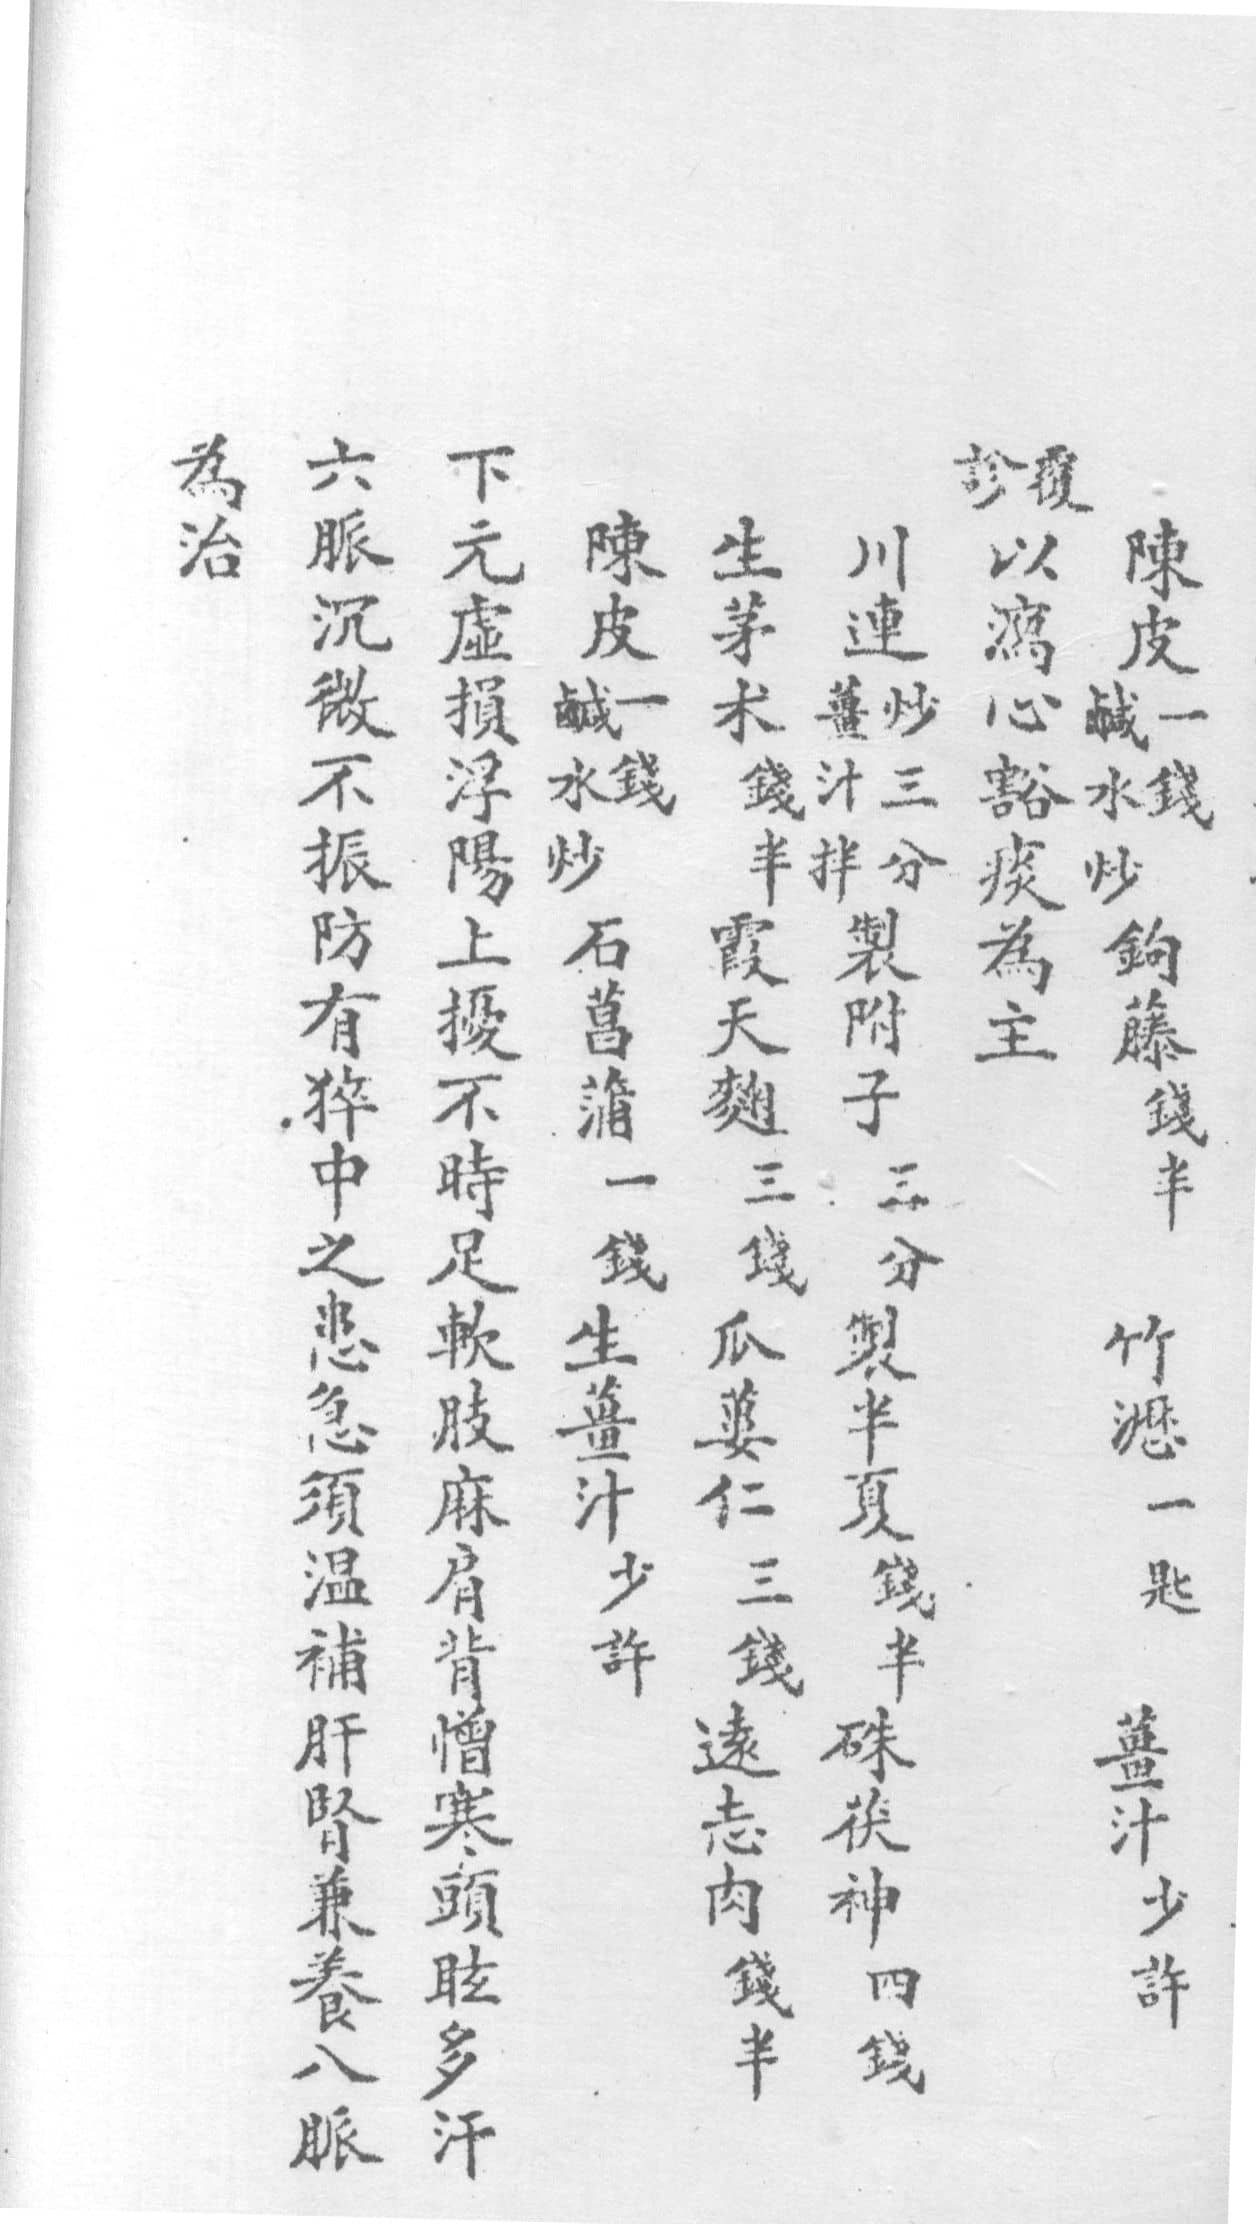 陳皮一錢鹹水炒鉤藤錢半竹瀝一匙薑汁少許
覆診以瀉心豁痰為主
川連炒三分薑汁拌製附子三分製半夏錢半硃茯神四錢
生茅朮錢半霞天麯三錢瓜蔞仁三錢遠志肉錢半
陳皮一錢鹹水炒石菖蒲一錢生薑汁少許
下元虛損浮陽上擾不時足軟肢麻肩背憎寒頭眩多汗
六脈沉微不振防有猝中之患急須温補肝腎兼養八脈
為治